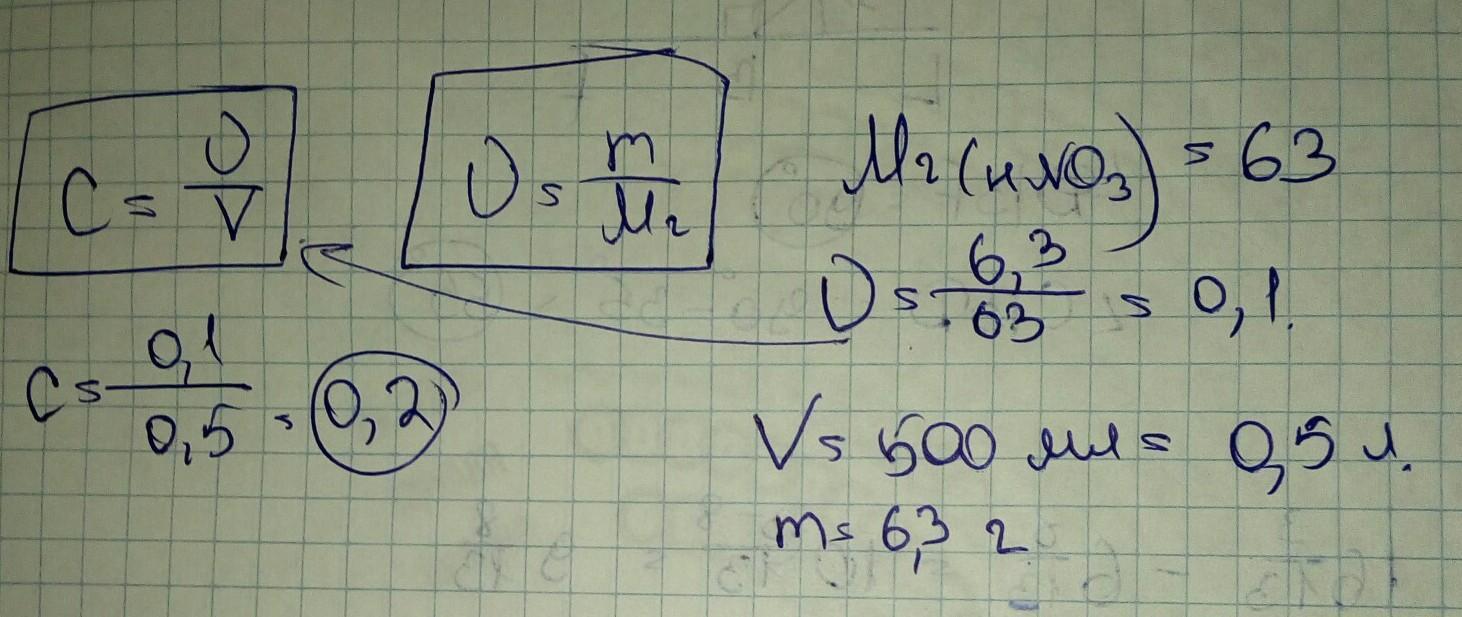 C = υ/V
υ = m/Mr
Mr(HNO₃) = 63
υ = 6,3/63 = 0,1.
C = 0,1/0,5 = 0,2
V = 500 мл = 0,5 л.
m = 6,3 г